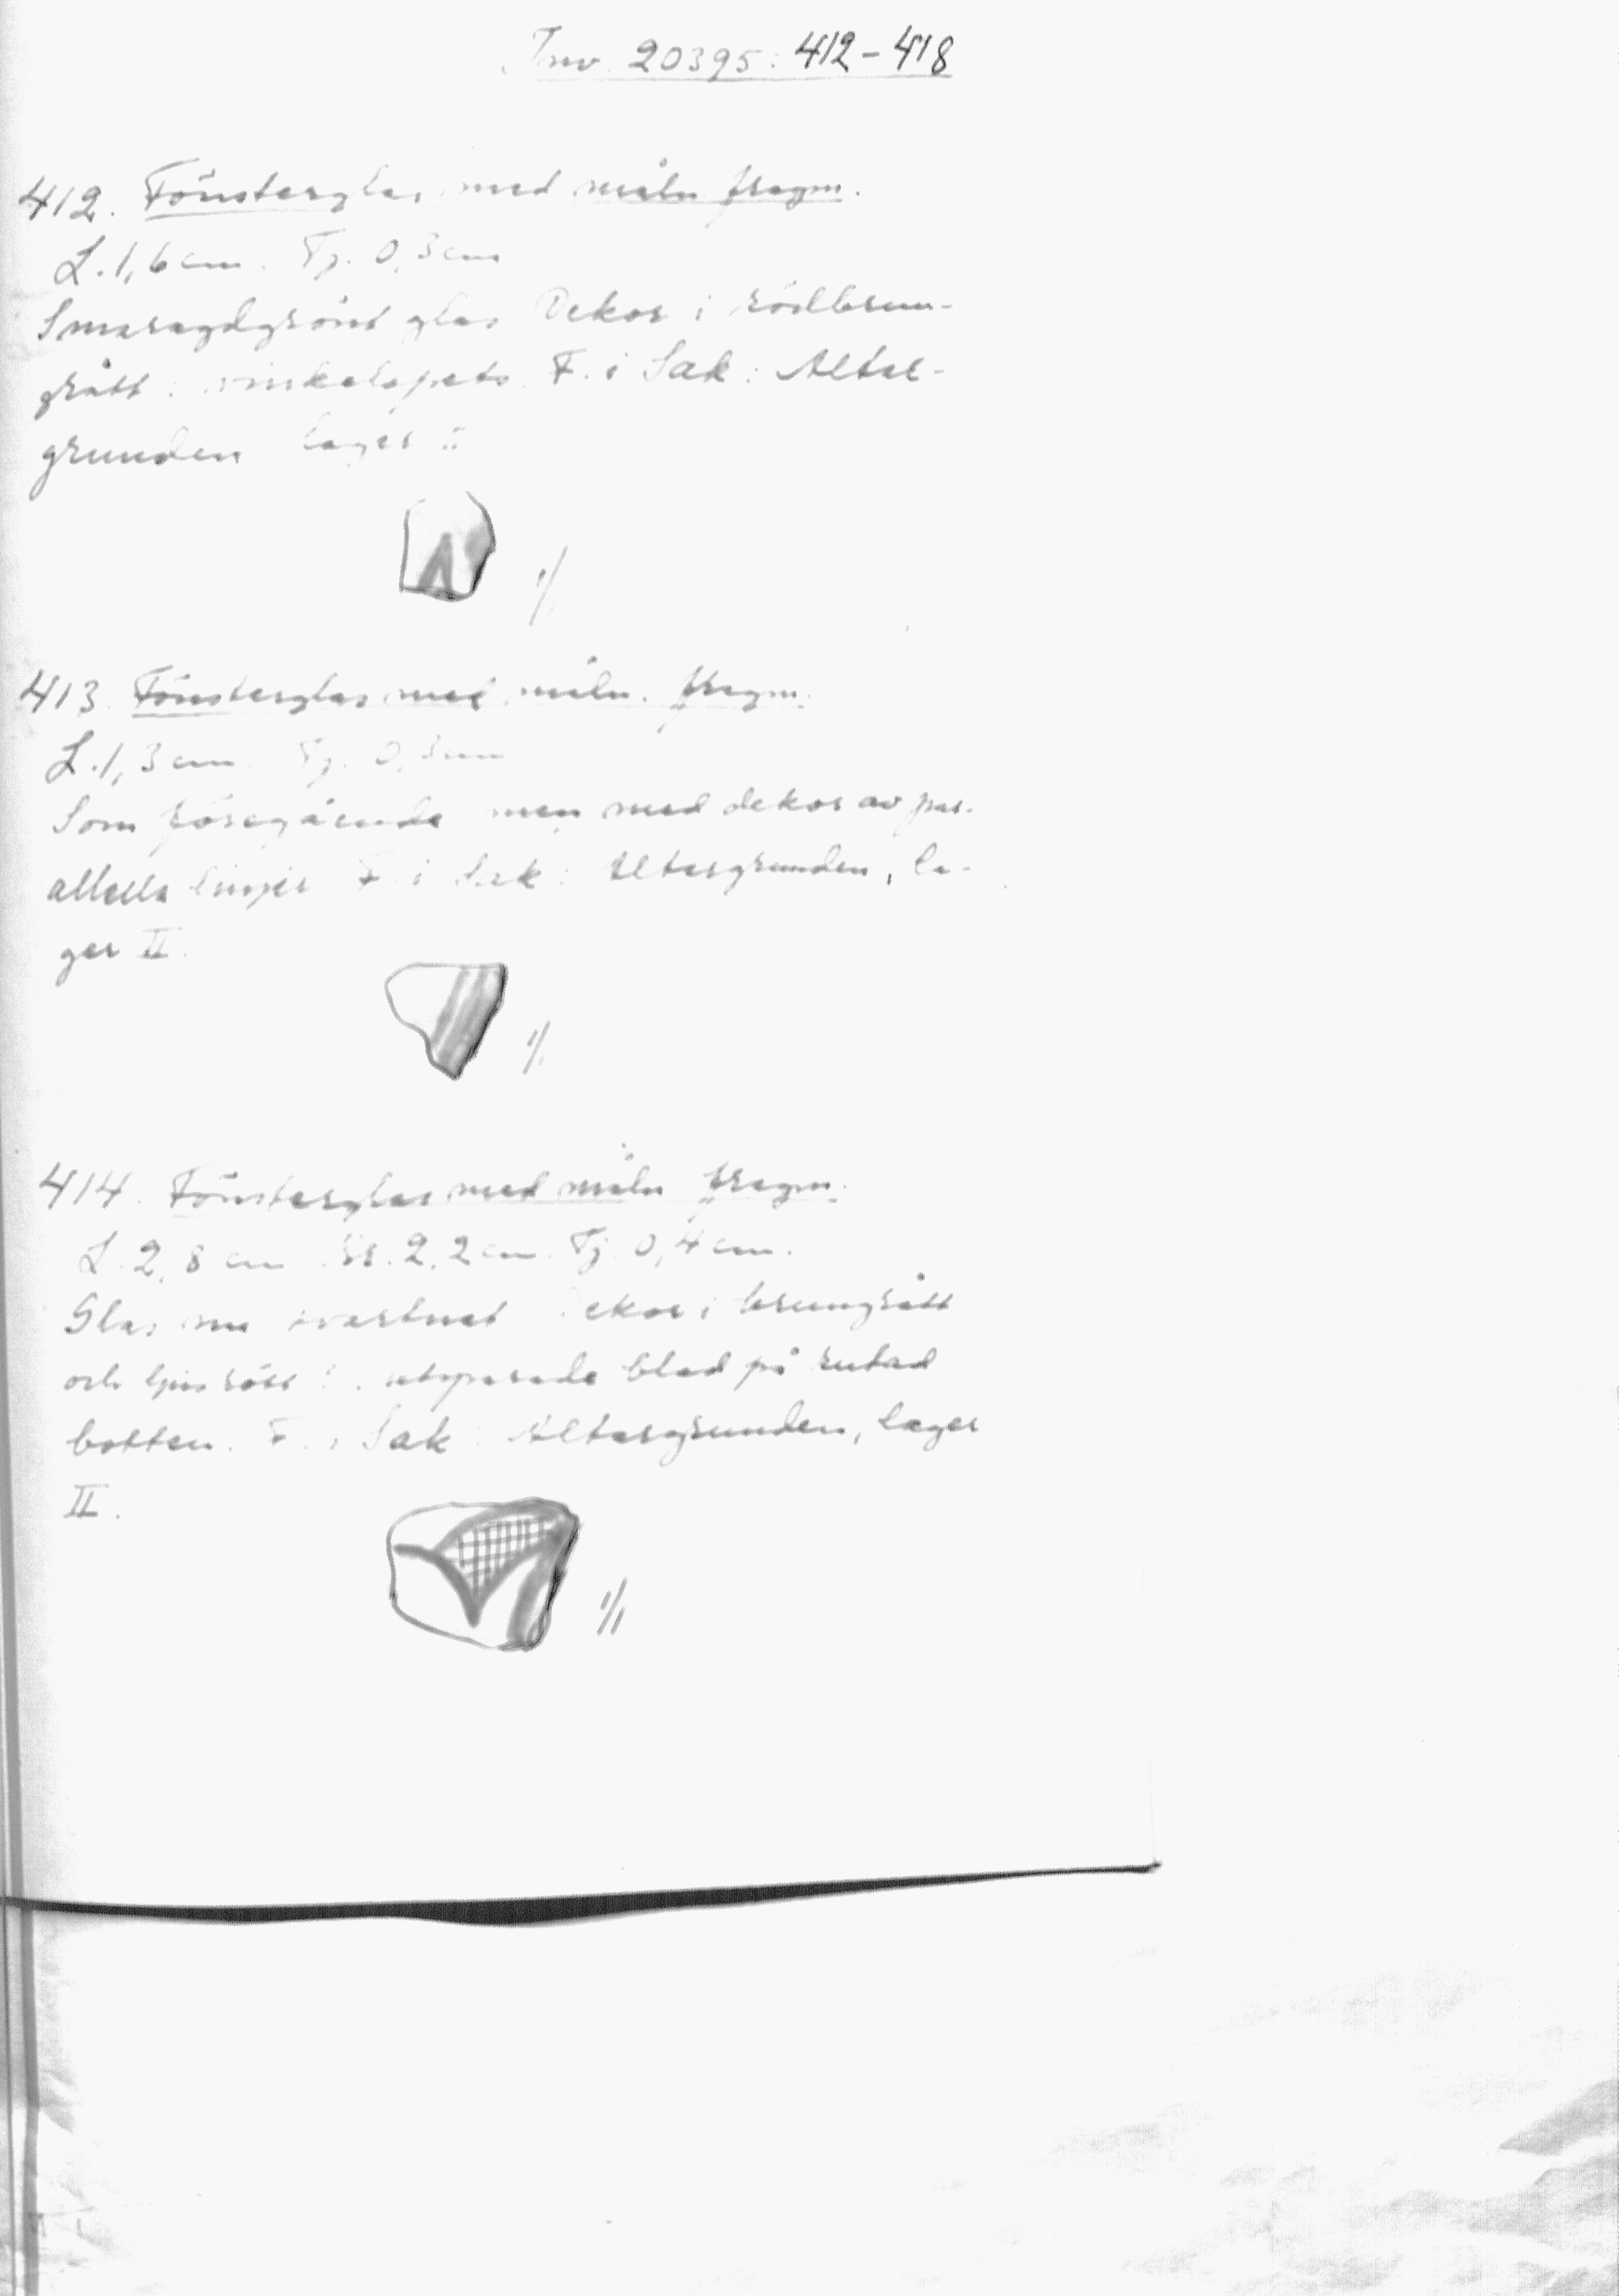 Inv. 20395: 412-418
412. Fönsterglas med måln. fragm.
L. 1,6 cm. Tj. 0,3 cm
Smaragdgrönt glas Dekor i rödbrun-
grått: F. i Sak: Altar-
grunden lager II
1/1
413 Fönsterglas med måln. fragm.
L. 1,3 cm Tj. 0,3 cm
Som föregående men med dekor av par-
allella linjer F. i Sak: Altargrunden, la-
ger II.
1/1
414. Fönsterglas med måln fragm.
L. 2,8 cm. Br. 2,2 cm. Tj. 0,4 cm.
Glas nu svartnat Dekor i brungrått
och ljusrött: utsparade blad på rutad
botten. F. i Sak: Altargrunden, lager
II.
1/1